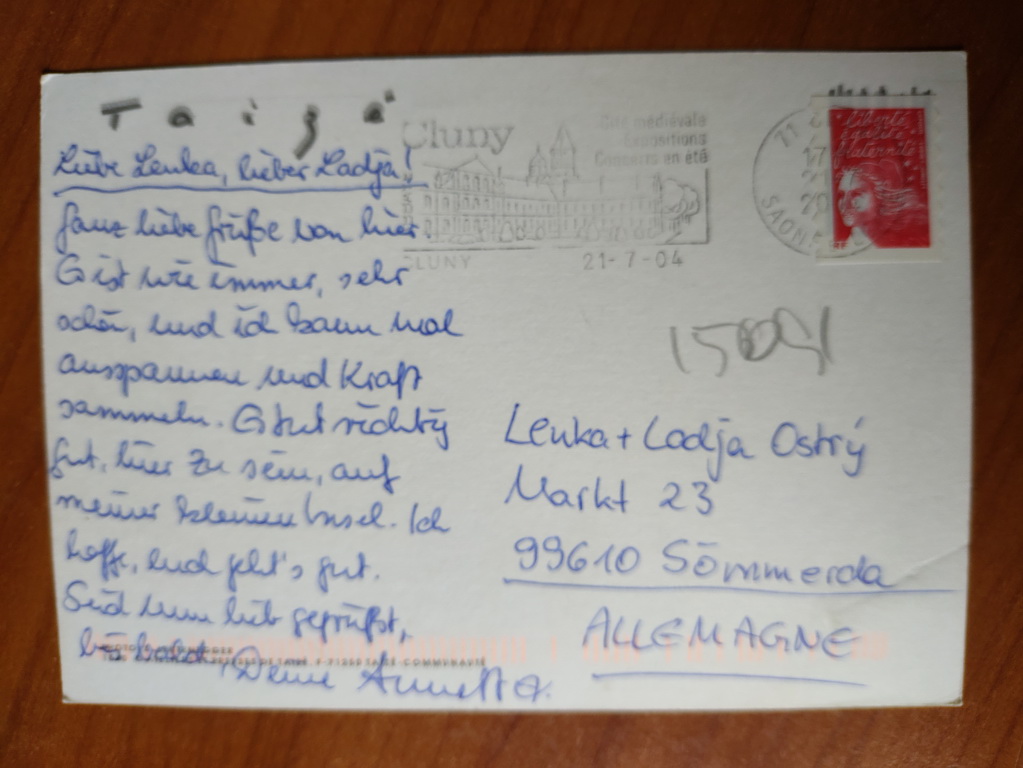 Taizé
Liebe Lenka, lieber Ladja!
ganz liebe Grüße von hier
Es ist wie immer, sehr
schön, und ich kann mal
ausspannen und Kraft
sammeln. Es tut richtig
gut, hier zu sein, auf
meiner kleinen Insel. Ich
hoffe, euch geht's gut.
Seid nun lieb gegrüßt,
bis bald, Deine Annett
Cluny
Cité médiévale
Expositions
Concerts en été
CLUNY 21-7-04
71
17
20
SAONE
liberté
égalité
fraternité
Lenka + Ladja Ostrý
Markt 23
99610 Sömmerda
ALLEMAGNE
TAIZÉ-COMMUNAUTÉ